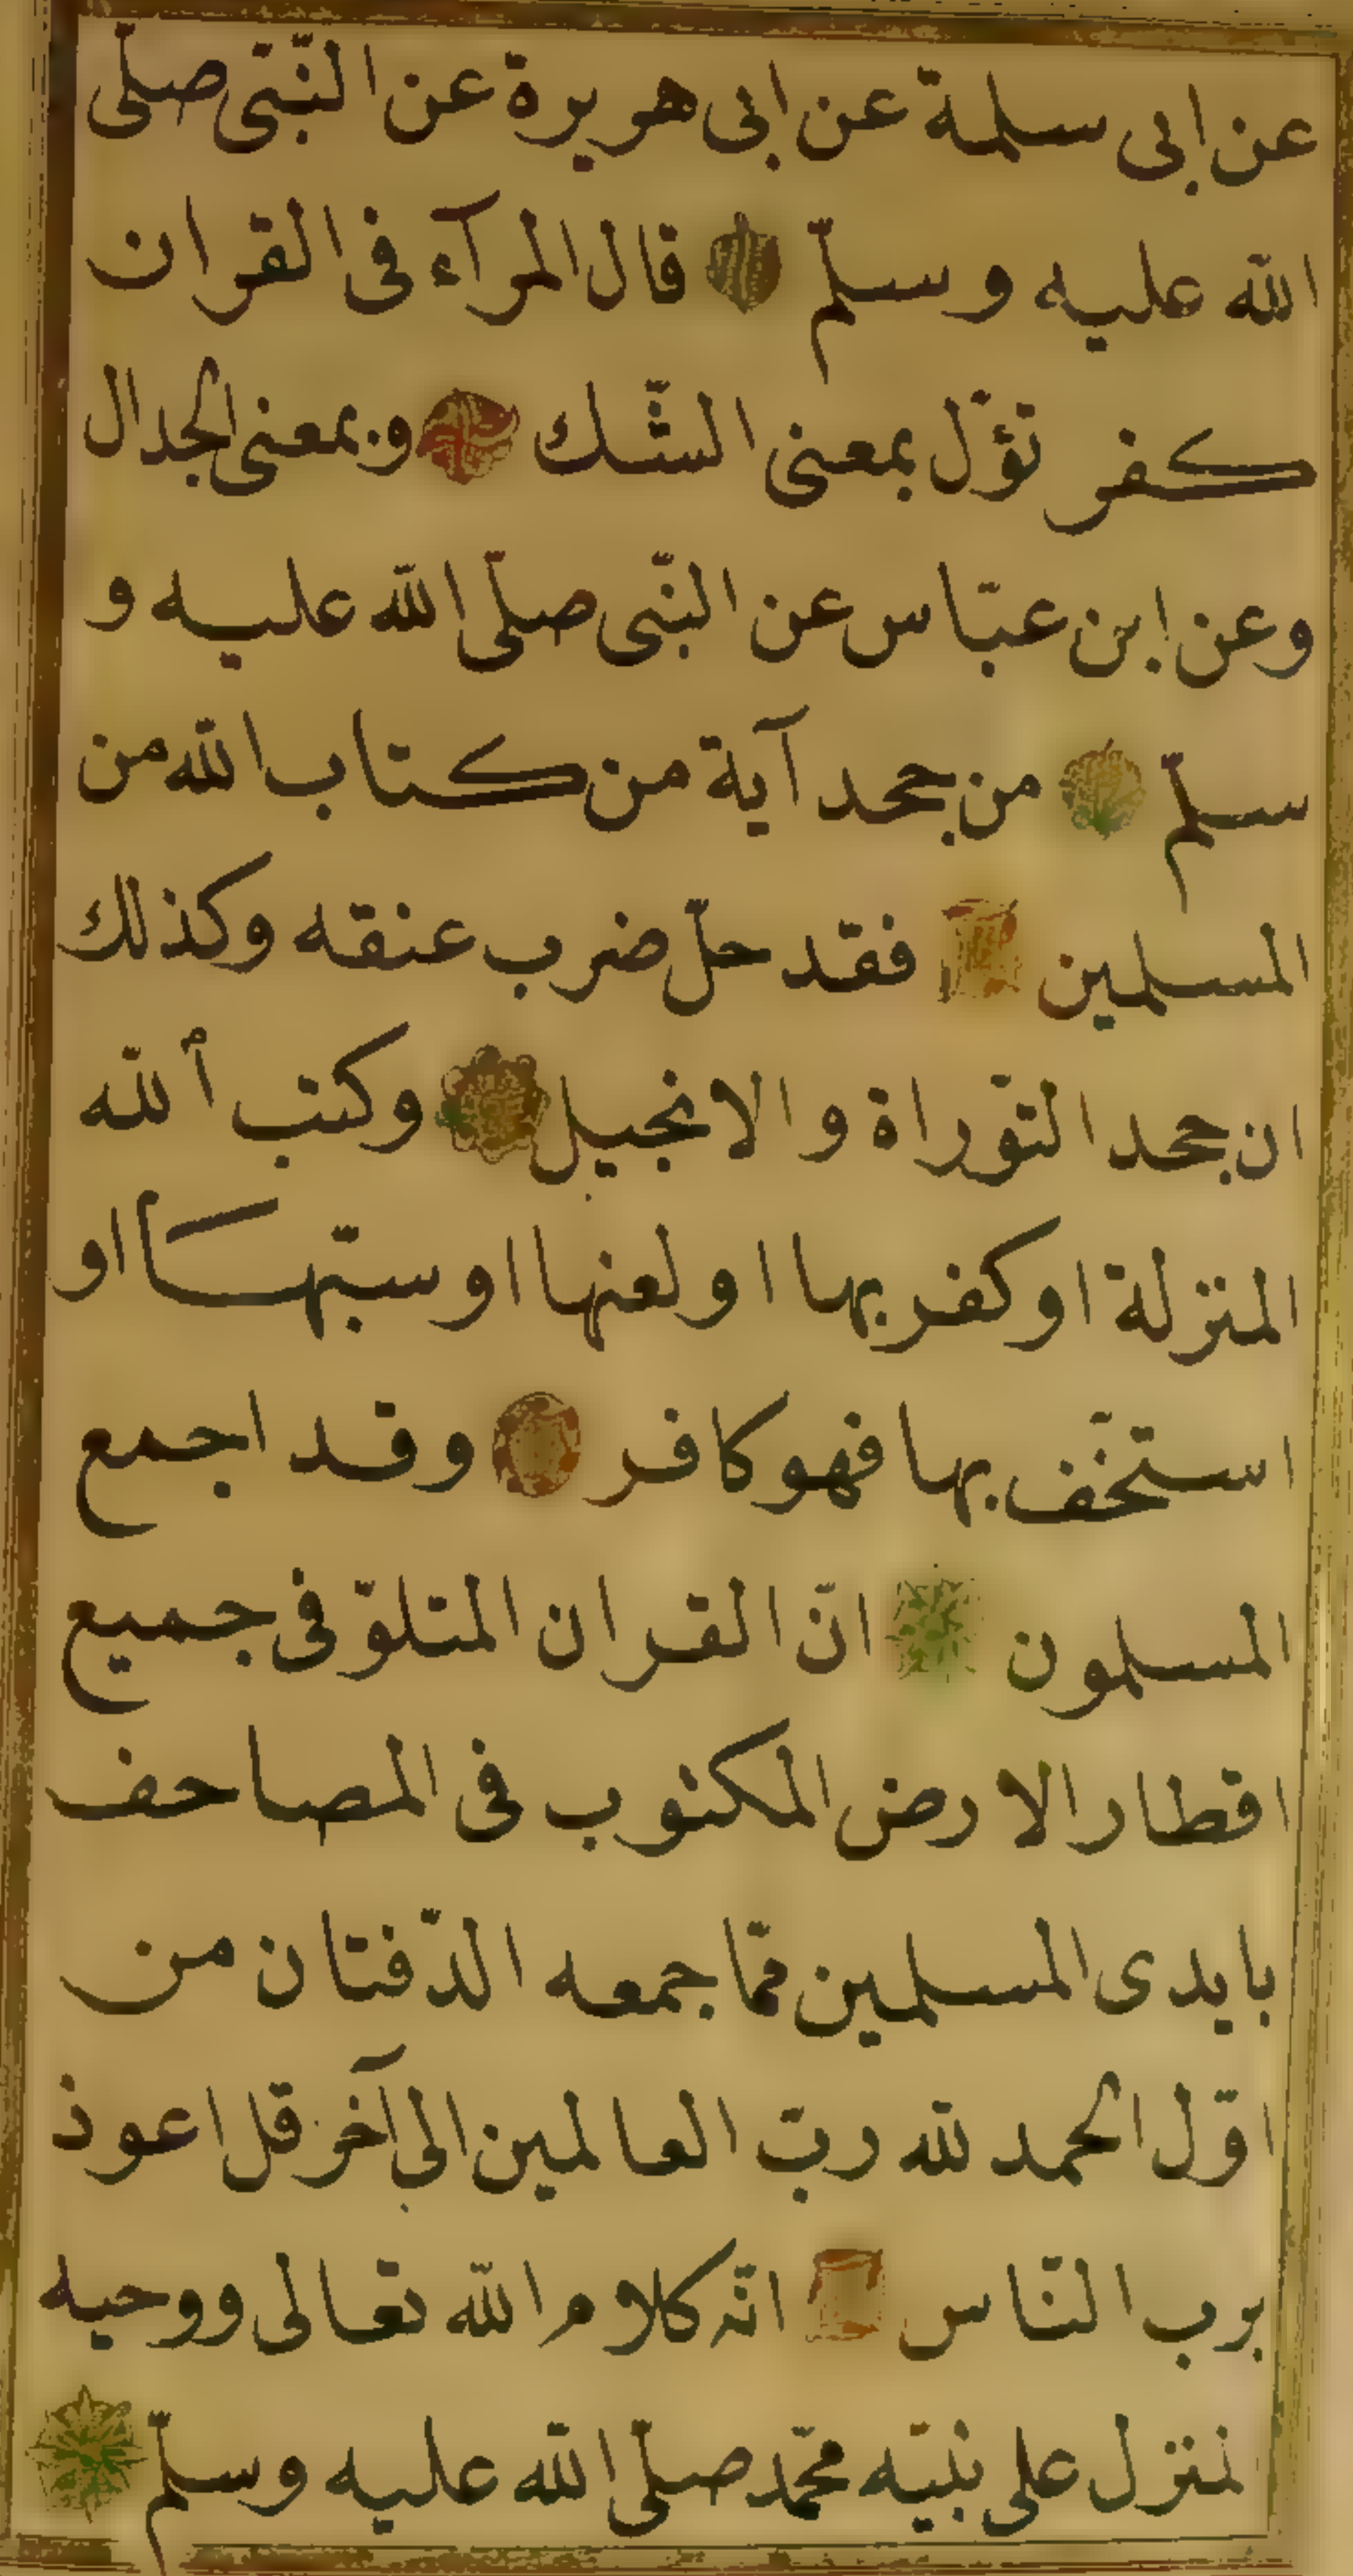 عن ابى سلمة عن ابى هريرة عن النّبّى صلّى
الله عليه وسلّم قال المرآء فى القران
كفر تؤّل بمعنى الشّك وبمعنى الجدال
وعن ابن عبّاس عن النّبى صلّى الله عليه و
سلّم من جحد آية من كتاب الله من
المسلمين فقد حلّ ضرب عنقه وكذلك
ان جحد التّوراة والانجيل وكتب ألله
المنزلة او كفر بها او لعنها او سبّها او
استخّف بها فهو كافر وقد اجمع
المسلمون انّ القران المتلوّ فى جميع
اقطار الارض المكتوب فى المصاحف
بايدى المسلمين ممّا جمعه الدّفتان من
اوّل الحمد لله ربّ العالمين الى آخر قل اعوذ
برب النّاس انّه كلام الله تعالى ووحيه
لمنزل على نبيّه محمّد صلّى الله عليه وسلّم